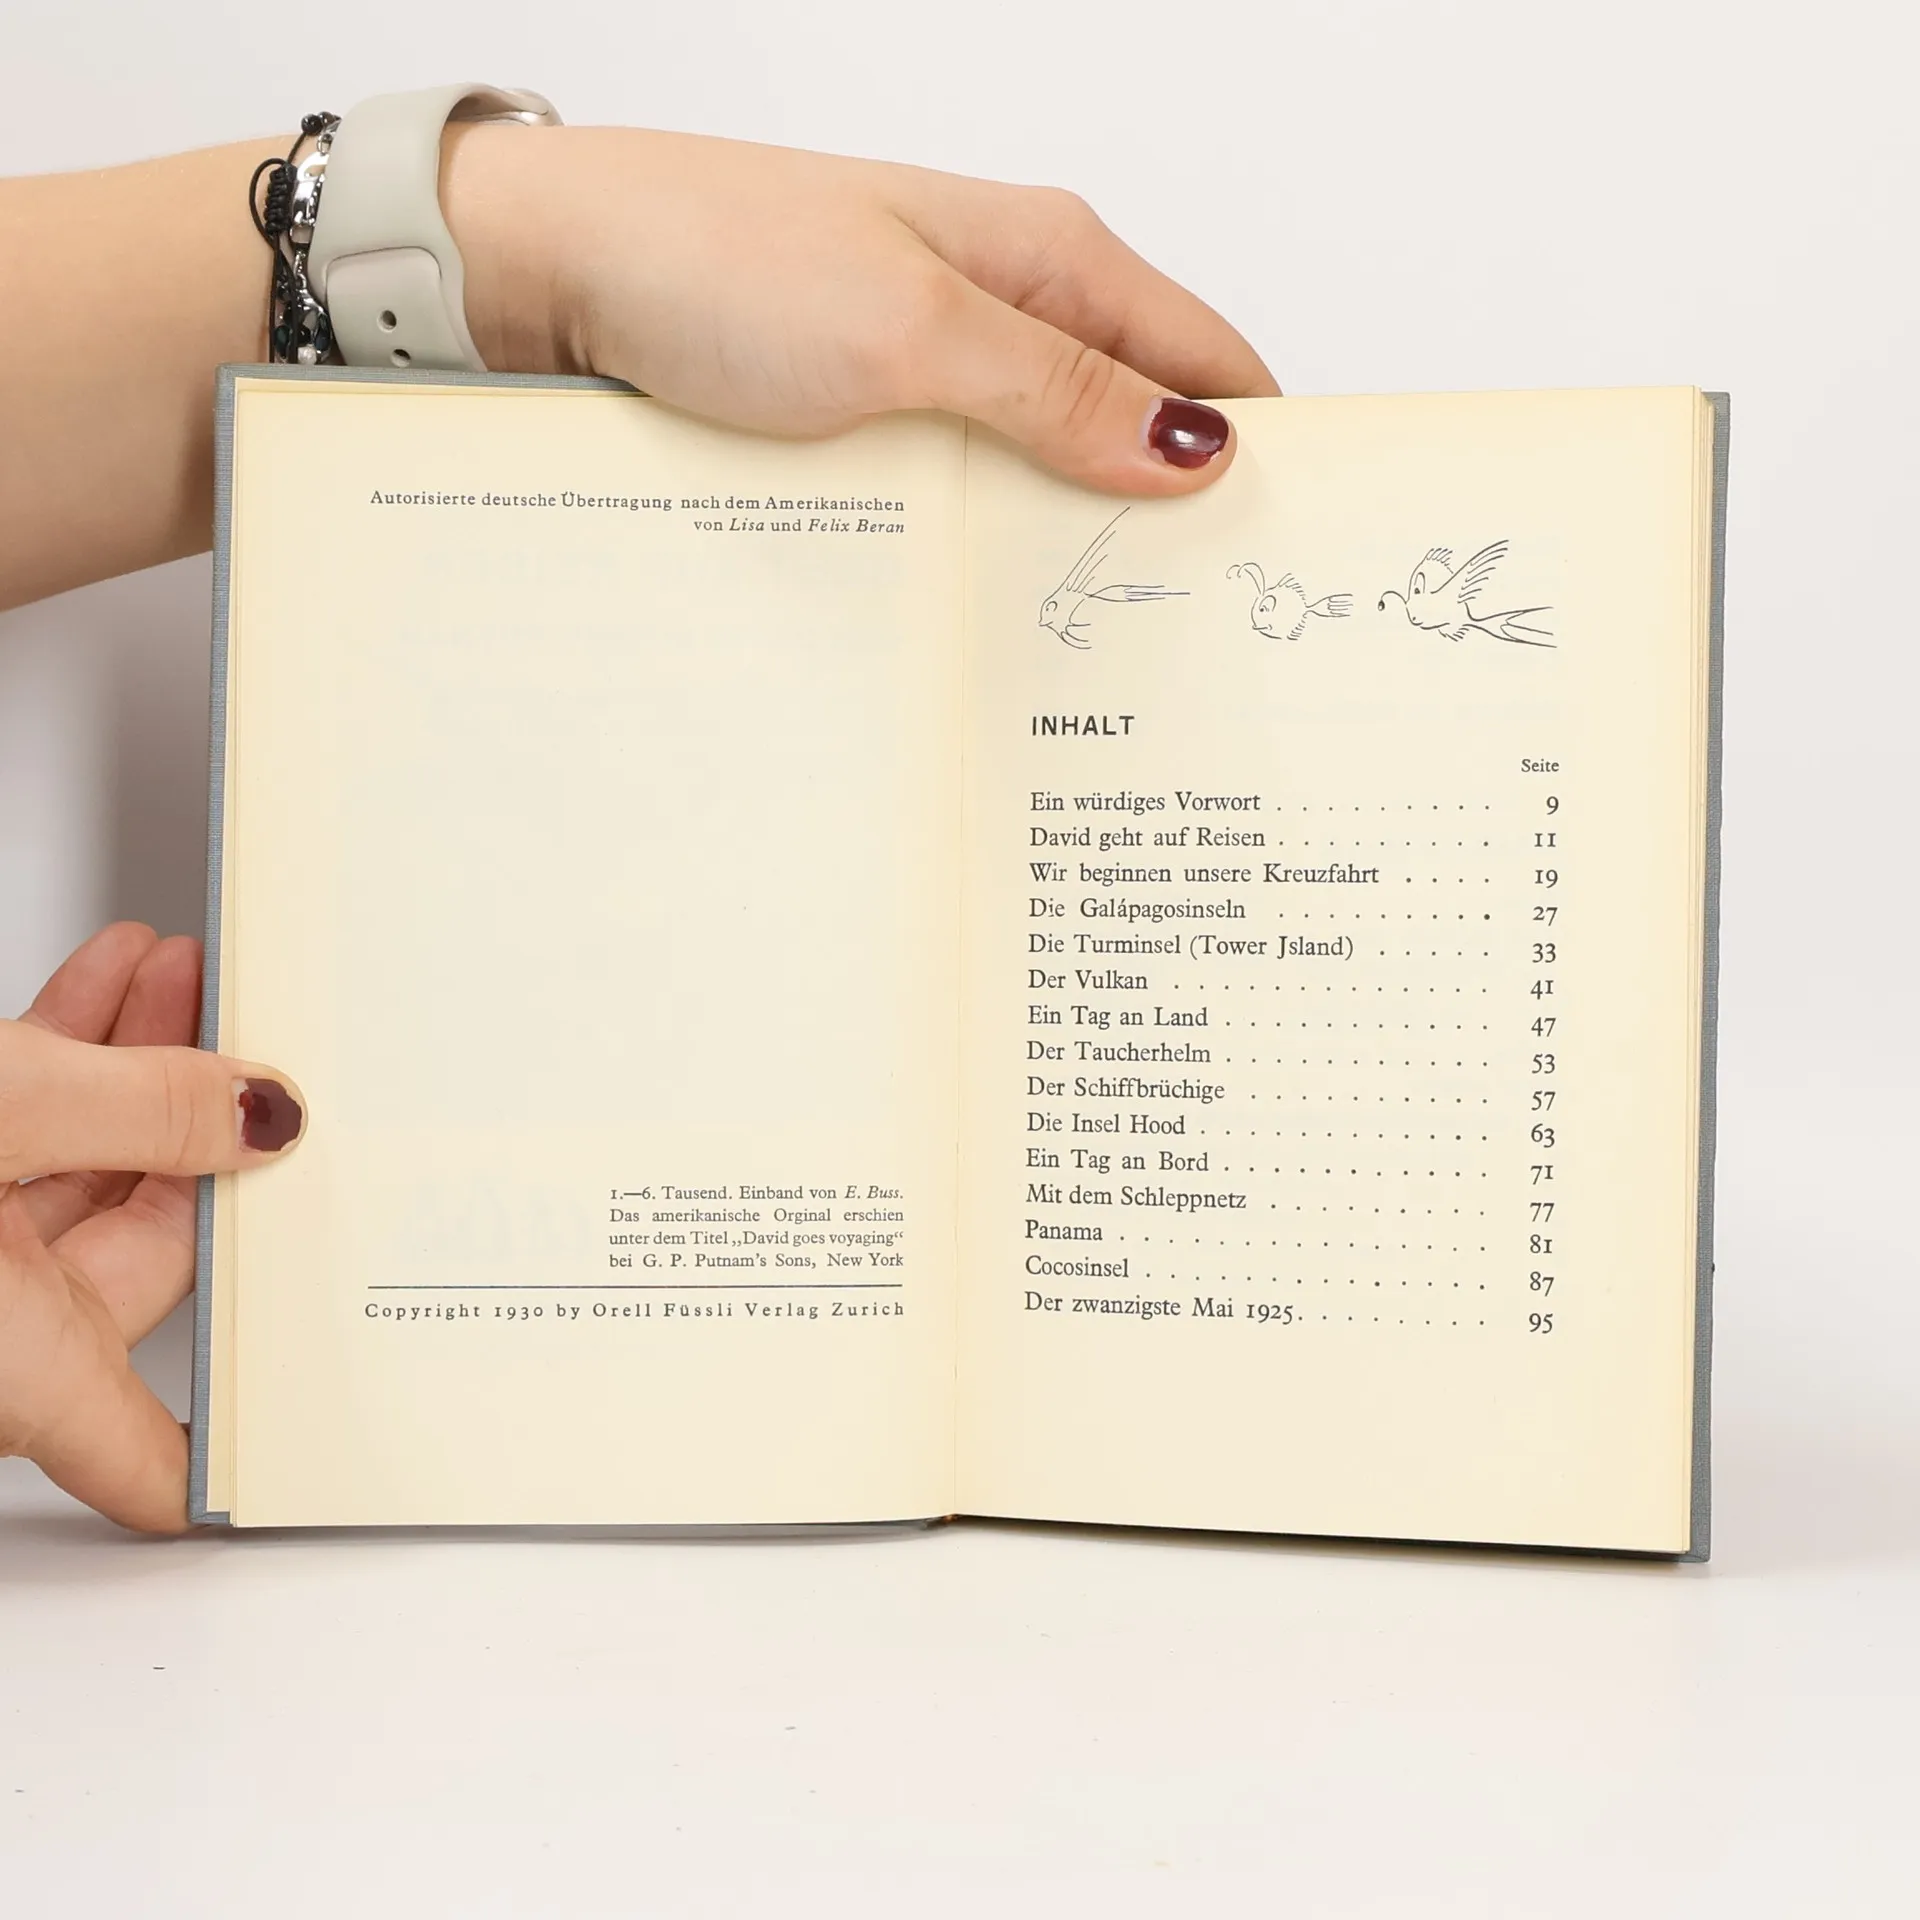 Autorisierte deutsche Übertragung nach dem Amerikanischen
von Lisa und Felix Beran
1.—6. Tausend. Einband von E. Buss.
Das amerikanische Orginal erschien
unter dem Titel „David goes voyaging“
bei G. P. Putnam's Sons, New York
Copyright 1930 by Orell Füssli Verlag Zurich
INHALT
Seite
Ein würdiges Vorwort . . . . . . . . . 9
David geht auf Reisen . . . . . . . . . 11
Wir beginnen unsere Kreuzfahrt . . . . 19
Die Galápagosinseln . . . . . . . . . 27
Die Turminsel (Tower Jsland) . . . . . 33
Der Vulkan . . . . . . . . . . . . . 41
Ein Tag an Land . . . . . . . . . . . 47
Der Taucherhelm . . . . . . . . . . . 53
Der Schiffbrüchige . . . . . . . . . . 57
Die Insel Hood . . . . . . . . . . . . 63
Ein Tag an Bord . . . . . . . . . . . 71
Mit dem Schleppnetz . . . . . . . . . 77
Panama . . . . . . . . . . . . . . . 81
Cocosinsel . . . . . . . . . . . . . . 87
Der zwanzigste Mai 1925. . . . . . . . 95